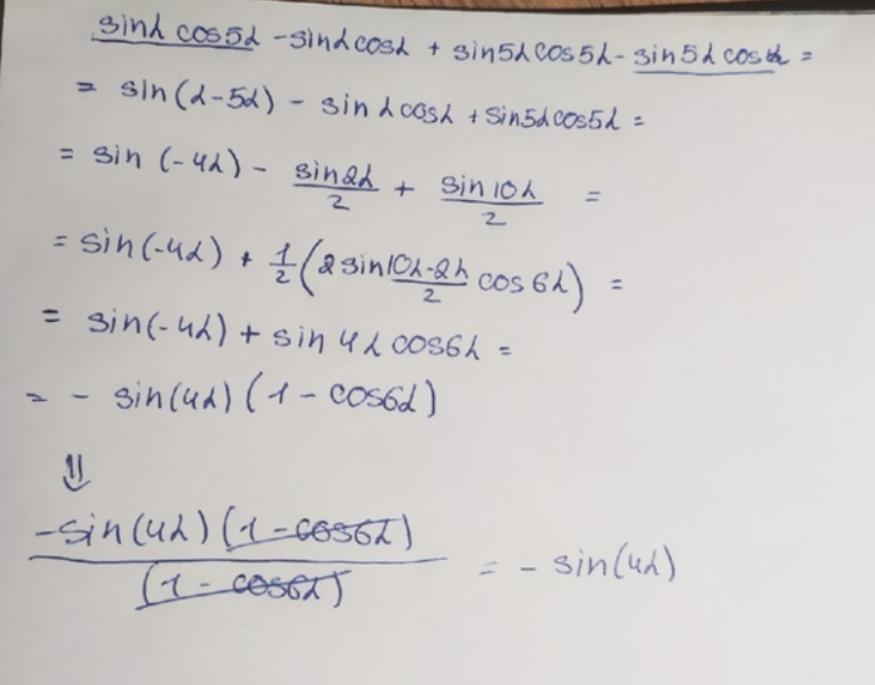 sinα cos5α - sinα cosα + sin5α cos5α - sin5α cosα =
= sin(α-5α) - sin α cosα + sin5α cos5α =
= sin (-4α) - sin2α/2 + sin 10α/2 =
= sin(-4α) + 1/2 (2 sin 10α-2α/2 cos 6α) =
= sin(-4α) + sin 4α cos6α =
= - sin(4α) (1 - cos6α)
⇓
-sin(4α) (1 - cos6α)/(1 - cos6α) = - sin(4α)